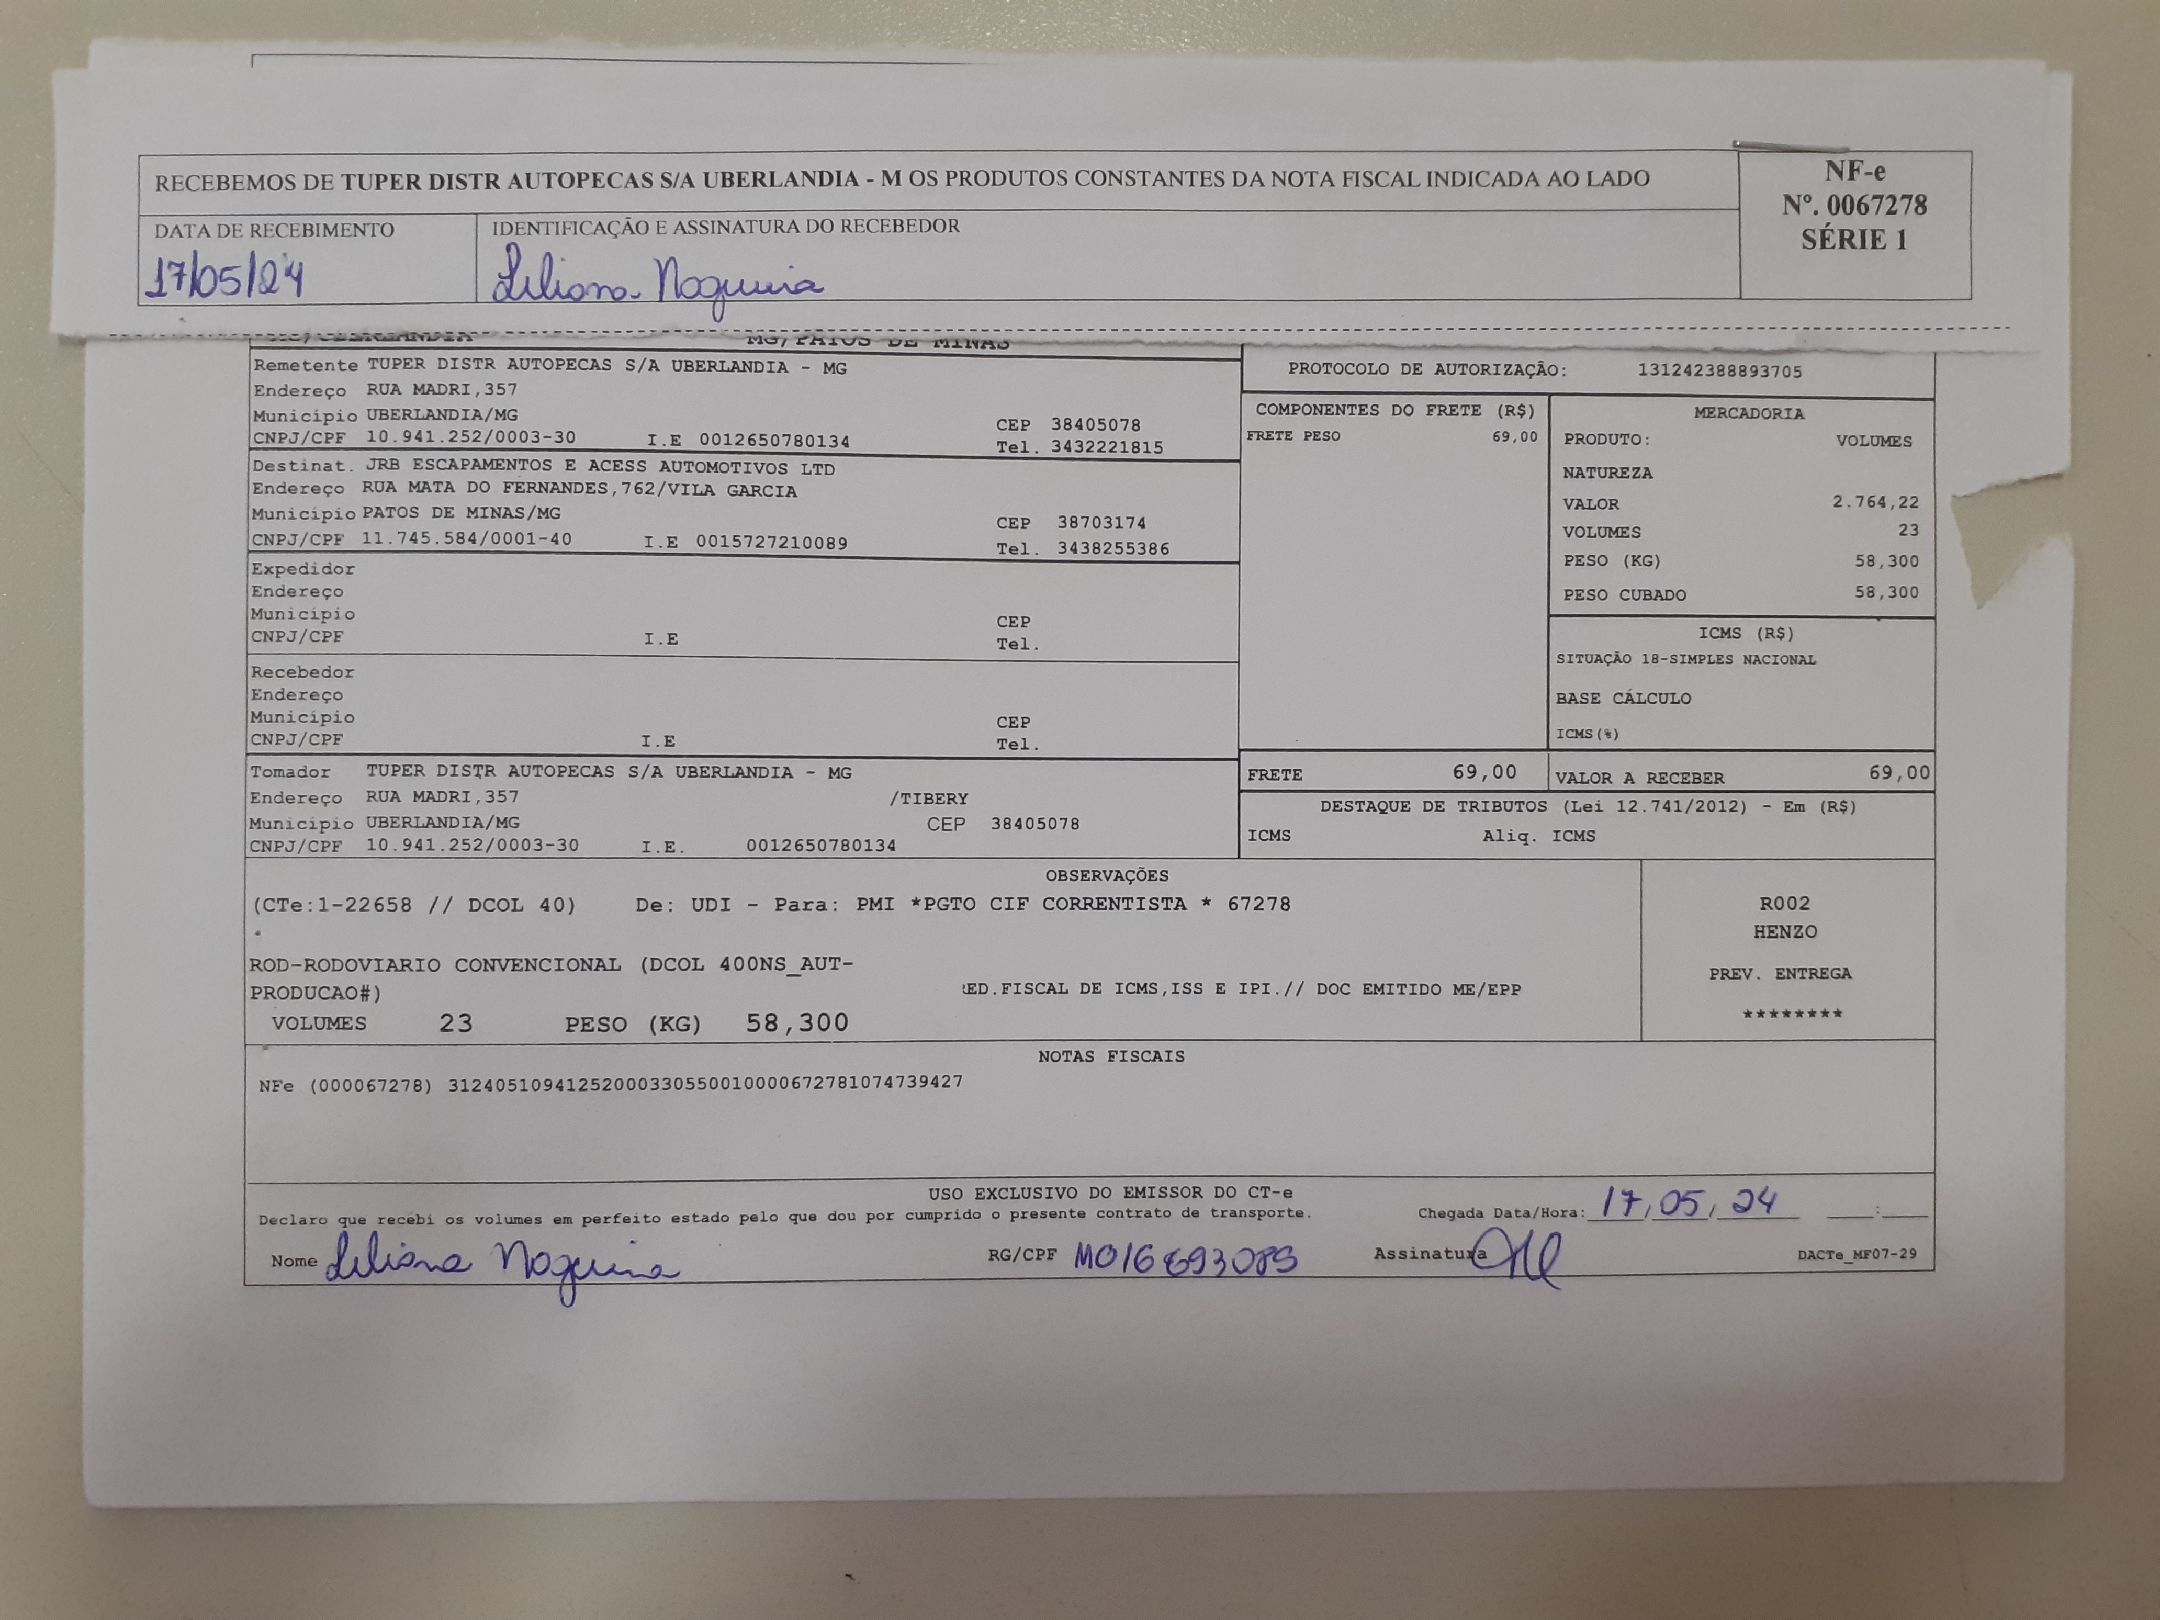 RECEBEMOS DE TUPER DISTR AUTOPECAS S/A UBERLANDIA - M OS PRODUTOS CONSTANTES DA NOTA FISCAL INDICADA AO LADO
NF-e
Nº. 0067278
SÉRIE 1
DATA DE RECEBIMENTO
17/05/24
IDENTIFICAÇÃO E ASSINATURA DO RECEBEDOR
Liliana Nogueira
MG/PATOS DE MINAS
Remetente TUPER DISTR AUTOPECAS S/A UBERLANDIA - MG
Endereço RUA MADRI,357
Município UBERLANDIA/MG CEP 38405078
CNPJ/CPF 10.941.252/0003-30 I.E 0012650780134 Tel. 3432221815
Destinat. JRB ESCAPAMENTOS E ACESS AUTOMOTIVOS LTD
Endereço RUA MATA DO FERNANDES,762/VILA GARCIA
Município PATOS DE MINAS/MG CEP 38703174
CNPJ/CPF 11.745.584/0001-40 I.E 0015727210089 Tel. 3438255386
Expedidor
Endereço
Município CEP
CNPJ/CPF I.E Tel.
Recebedor
Endereço
Município CEP
CNPJ/CPF I.E Tel.
Tomador TUPER DISTR AUTOPECAS S/A UBERLANDIA - MG
Endereço RUA MADRI,357 /TIBERY
Município UBERLANDIA/MG CEP 38405078
CNPJ/CPF 10.941.252/0003-30 I.E. 0012650780134
PROTOCOLO DE AUTORIZAÇÃO: 131242388893705
COMPONENTES DO FRETE (R$)
FRETE PESO 69,00
MERCADORIA
PRODUTO: VOLUMES
NATUREZA
VALOR 2.764,22
VOLUMES 23
PESO (KG) 58,300
PESO CUBADO 58,300
ICMS (R$)
SITUAÇÃO 18-SIMPLES NACIONAL
BASE CÁLCULO
ICMS(%)
FRETE 69,00 VALOR A RECEBER 69,00
DESTAQUE DE TRIBUTOS (Lei 12.741/2012) - Em (R$)
ICMS Aliq. ICMS
OBSERVAÇÕES
(CTe:1-22658 // DCOL 40) De: UDI - Para: PMI *PGTO CIF CORRENTISTA * 67278
ROD-RODOVIARIO CONVENCIONAL (DCOL 400NS_AUT-
PRODUCAO#) ED.FISCAL DE ICMS,ISS E IPI.// DOC EMITIDO ME/EPP
VOLUMES 23 PESO (KG) 58,300
R002
HENZO
PREV. ENTREGA
********
NOTAS FISCAIS
NFe (000067278) 31240510941252000330550010000672781074739427
USO EXCLUSIVO DO EMISSOR DO CT-e
Declaro que recebi os volumes em perfeito estado pelo que dou por cumprido o presente contrato de transporte. Chegada Data/Hora: 17/05/24 __:__
Nome Liliana Nogueira RG/CPF Assinatura DACTe_MF07-29